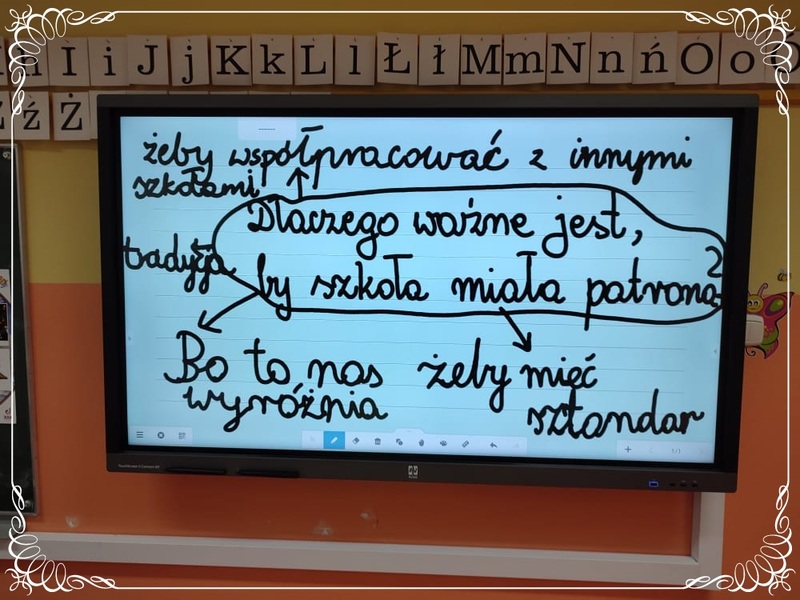 I i J j K k L l Ł ł M m N n ń O o
ź Ż
żeby współpracować z innymi
szkołami
Dlaczego ważne jest,
tradycja
by szkoła miała patrona?
Bo to nas
wyróżnia
żeby mieć
sztandar
1/1